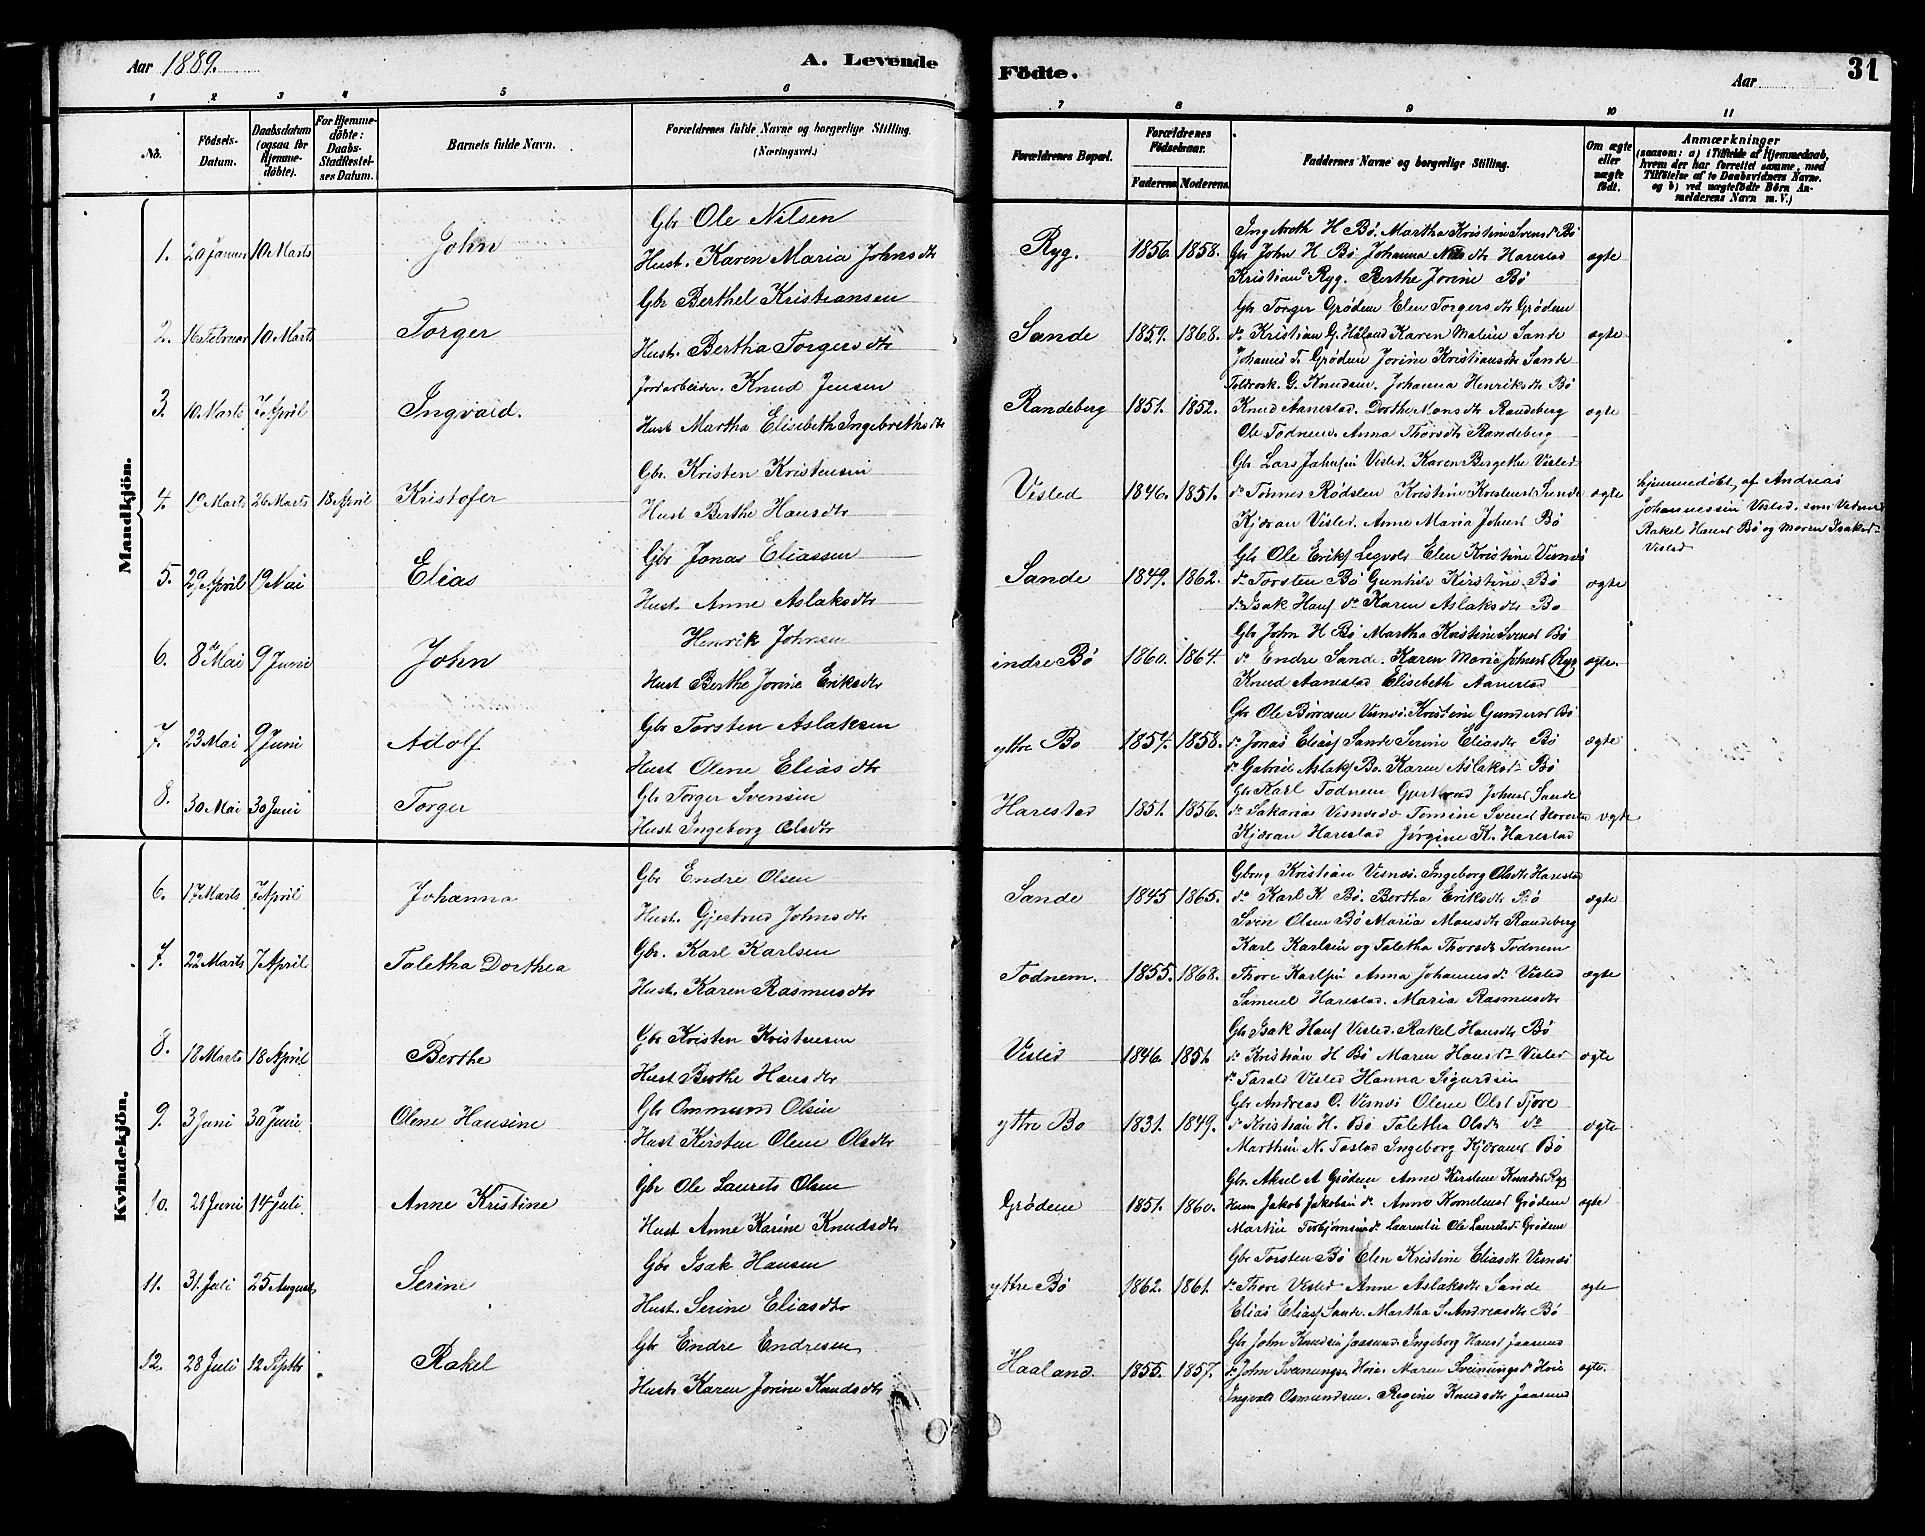 Aar 1889.
A. Levende
1 2 3 4 5 6
No.
Födsels-Datum.
Daabsdatum (ogsaa for Hjemme-döbte).
For Hjemme-döbte: Daabs-Stadfæstel-ses Datum.
Barnets fulde Navn.
Forældrenes fulde Navne og borgerlige Stilling. (Næringsvei.)
Mandkjön.
1. 20 Januar 10 Marts John
Gbr Ole Nilsen
Hust. Karen Maria Johnsdtr
2. 16 Februar 10 Marts Torger
Gbr Berthel Kristiansen
Hust. Bertha Torgersdtr
3. 10 Marts 7 April Ingvald.
Jordarbeider. Knud Jensen
Hust Martha Elisebeth Ingebrethsdtr
4. 19 Marts 26 Marts 18 April Kristofer
Gbr. Kristen Kristensen
Hust Berthe Hansdtr
5. 29 April 19 Mai Elias
Gbr Jonas Eliassen
Hust. Anne Aslaksdtr
6. 8de Mai 9 Juni John
Henrik Johnsen
Hust Berthe Jorine Eriksdtr
7. 23 Mai 9 Juni Adolf
Gbr Torsten Aslaksen
Hust Olene Eliasdtr
8. 30 Mai 30 Juni Torger
Gbr Torger Svensen
Hust Ingeborg Olsdtr
Kvindekjön.
6. 17 Marts 7 April Johanna
Gbr Endre Olsen
Hust. Gjertrud Johnsdtr
7. 22 Marts 7 April Taletha Dorthea
Gbr. Karl Karlsen
Hust. Karen Rasmusdtr
8. 18 Marts 18 April Berthe
Gbr Kristen Kristensen
Hust Berthe Hansdtr
9. 3 Juni 30 Juni Olene Hansine
Gbr Ommund Olsen
Hust Kirsten Olene Olsdtr
10. 21 Juni 14 Juli Anne Kristine
Gbr Ole Laurets Olsen
Hust Anne Karine Knudsdtr
11. 31. Juli 25 August Serine
Gbr Isak Hansen
Hust. Serine Eliasdtr
12. 28 Juli 12 Septbr Rakel
Gbr Endre Endresen
Hust. Karen Jorine Knudsdtr
Födte.
Aar
31
7 8 9 10 11
Forældrenes Bopæl.
Forældrenes Födselsaar.
Faderens. Moderens.
Faddernes Navne og borgerlige Stilling.
Om ægte eller uægte födt.
Anmærkninger
(saasom: a) i Tilfælde af Hjemmedaab, hvem der har forrettet samme, med Tilföielse af to Daabsvidners Navne. og b) ved uægtefödte Börn An-melderens Navn m. V.)
Ryg. 1856. 1858. ægte
H Bø. Martha Kristine Svensdr Bø
Gbr John H Bø Johanna Nilsdtr Harestad
Kristian Ryg. Berthe Jorine Bø
Sande 1859. 1868. ægte
Gbr Torger Grødem Elen Torgersdtr Grødem
do Kristian G. Håland Karen Maline Sande
Johannes T. Grødem Jorine Kristiansdtr Sande
Randeberg 1851. 1852. ægte
G. Knudsen. Johanna Henriksdtr Bø
Knud Aanestad. Dorthe Monsdtr Randeberg
Ole Todnem. Anna Thorsdtr Randeberg
Visted 1846. 1851. ægte
Gbr Lars Visted. Karen Visted
do Tønnes Kristine Sande
Kjøran Visted. Anne Maria Johnsd Bø
hjemmedøbt, af Andreas
Johannessen Visted. som Vidner
Rakel Hansd Bø og Maren Isaksd
Visted
Sande 1849. 1862. ægte
Gbr Ole Eriks Elen Kristine Visnæs
do Torsten Bø Gunhild Kirstine Bø
do Isak Hans do Karen Aslaksdtr Bø
indre Bø 1860. 1864. ægte.
Gbr John H Bø Martha Kristine Svensd Bø
do Endre Sande. Karen Maria Johnsd Ryg
Knud Aanestad Elisebeth Aanestad
yttre Bø 1854. 1858. ægte
Gbr Ole Visnæs. Kristine Gundersd Bø
do Jonas Elias Sande Serine Eliasdtr Bø
do Gabriel Aslaks Bø. Karen Aslaksd Bø
Harestad 1851. 1856. ægte
Gbr Karl Todnem Gjertrud Johnsd Sande
do Sakarias Visnæs do Tomine Svensd Harestad
Kjøran Harestad Jørgine K. Harestad
Sande 1845 1865. ægte
Kristian Visnæs. Ingeborg Olsdtr Harestad
do Karl K Bø. Bertha Eriksdtr Bø
Sven Olsen Bø Maria Monsdtr Randeberg
Todnem. 1855. 1868. ægte
Karl Karlsen og Taletha Thorsdtr Todnem
Thore Karlsen Anna Johannesd Visted
Samuel Harestad. Maria Rasmusdtr
Visted 1846. 1851 ægte
Gbr Isak Hans Visted. Rakel Hansdtr Bø
do Kristian H Bø Maren Hansd Visted
do Tarald Visted Hanna Sigurdsen
yttre Bø 1831. 1849. ægte
Gbr Andreas O. Visnæs Olene Olsd Tjøre
do Kristian H. Bø Taletha Olsdr do
Marthin N. Tastad Ingeborg Kjøransd Bø
Grødem 1851. 1860. ægte
Gbr. Aksel A Grødem Anne Kirstine Knudsd Ryg
Jakob Jakobsen do Anne Kornelusd Grødem
Martin Torbjørnsen do Laurentse Ole Lauretsd Grødem
yttre Bø 1862. 1861 ægte
Gbr Torsten Bø Elen Kristine Eliasdtr Visnæs
do Thore Visted Anne Aslaksdtr Sande
Elias Elias Sande. Martha S. Andreasdtr Bø
Haaland. 1855. 1857. ægte.
Gbr John Knudsen Jaasund. Ingeborg Hansd Jaasund
do John Sveinungsen Hoie. Maren Sveinungsd Hoie
Ingvald Osmundsen. Regine Knudsdtr Jaasund